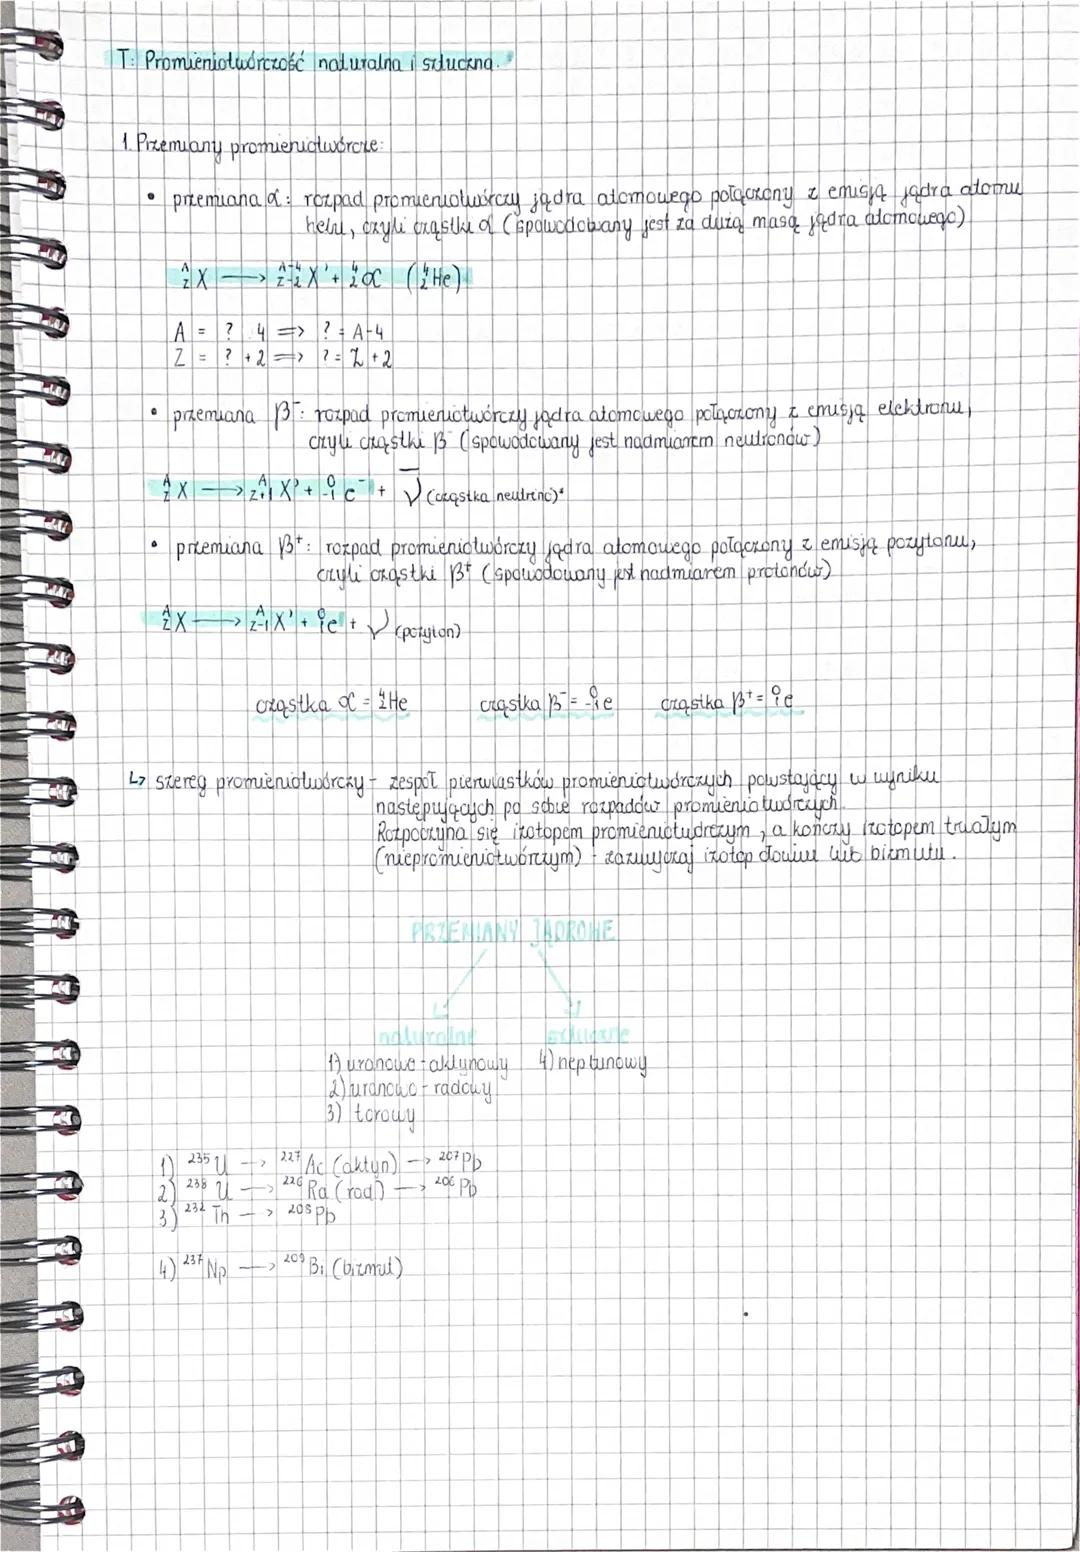 T: Promieniotwórczość naturalna i sztuczna.
1. Przemiany promieniotwórcze:
• przemiana α: rozpad promieniotwórczy jądra atomowego połączony z emisją jądra atomu
helu, czyli cząstki α (spowodowany jest za dużą masą jądra atomowego)
ᴬ_Z X ⟶ ᴬ⁻⁴_Z-2 X' + ⁴₂α (⁴₂He)
A = ? 4 => ? = A-4
Z = ? + 2 => ? = Z + 2
• przemiana β⁻: rozpad promieniotwórczy jądra atomowego połączony z emisją elektronu,
czyli cząstki β⁻ (spowodowany jest nadmiarem neutronów)
ᴬ_Z X ⟶ ᴬ_Z+1 X' + ⁰₋₁e⁻ + ν̅ (cząstka neutrino)*
• przemiana β⁺: rozpad promieniotwórczy jądra atomowego połączony z emisją pozytonu,
czyli cząstki β⁺ (spowodowany jest nadmiarem protonów)
ᴬ_Z X ⟶ ᴬ_Z-1 X' + ⁰₁e + ν (pozyton)
cząstka α = ⁴₂He cząstka β⁻ = ⁰₋₁e cząstka β⁺ = ⁰₁e
↳ szereg promieniotwórczy - zespół pierwiastków promieniotwórczych powstający w wyniku
następujących po sobie rozpadów promieniotwórczych.
Rozpoczyna się izotopem promieniotwórczym, a kończy izotopem trwałym
(niepromieniotwórczym) - zazwyczaj izotop ołowiu lub bizmutu.
PRZEMIANY JĄDROWE
naturalne sztuczne
1) uranowo-aktynowy 4) neptunowy
2) uranowo-radowy
3) torowy
1) ²³⁵U → ²²⁷Ac (aktyn) → ²⁰⁷Pb
2) ²³⁸U → ²²⁶Ra (rad) → ²⁰⁶Pb
3) ²³²Th → ²⁰⁸Pb
4) ²³⁷Np → ²⁰⁹Bi (bizmut)